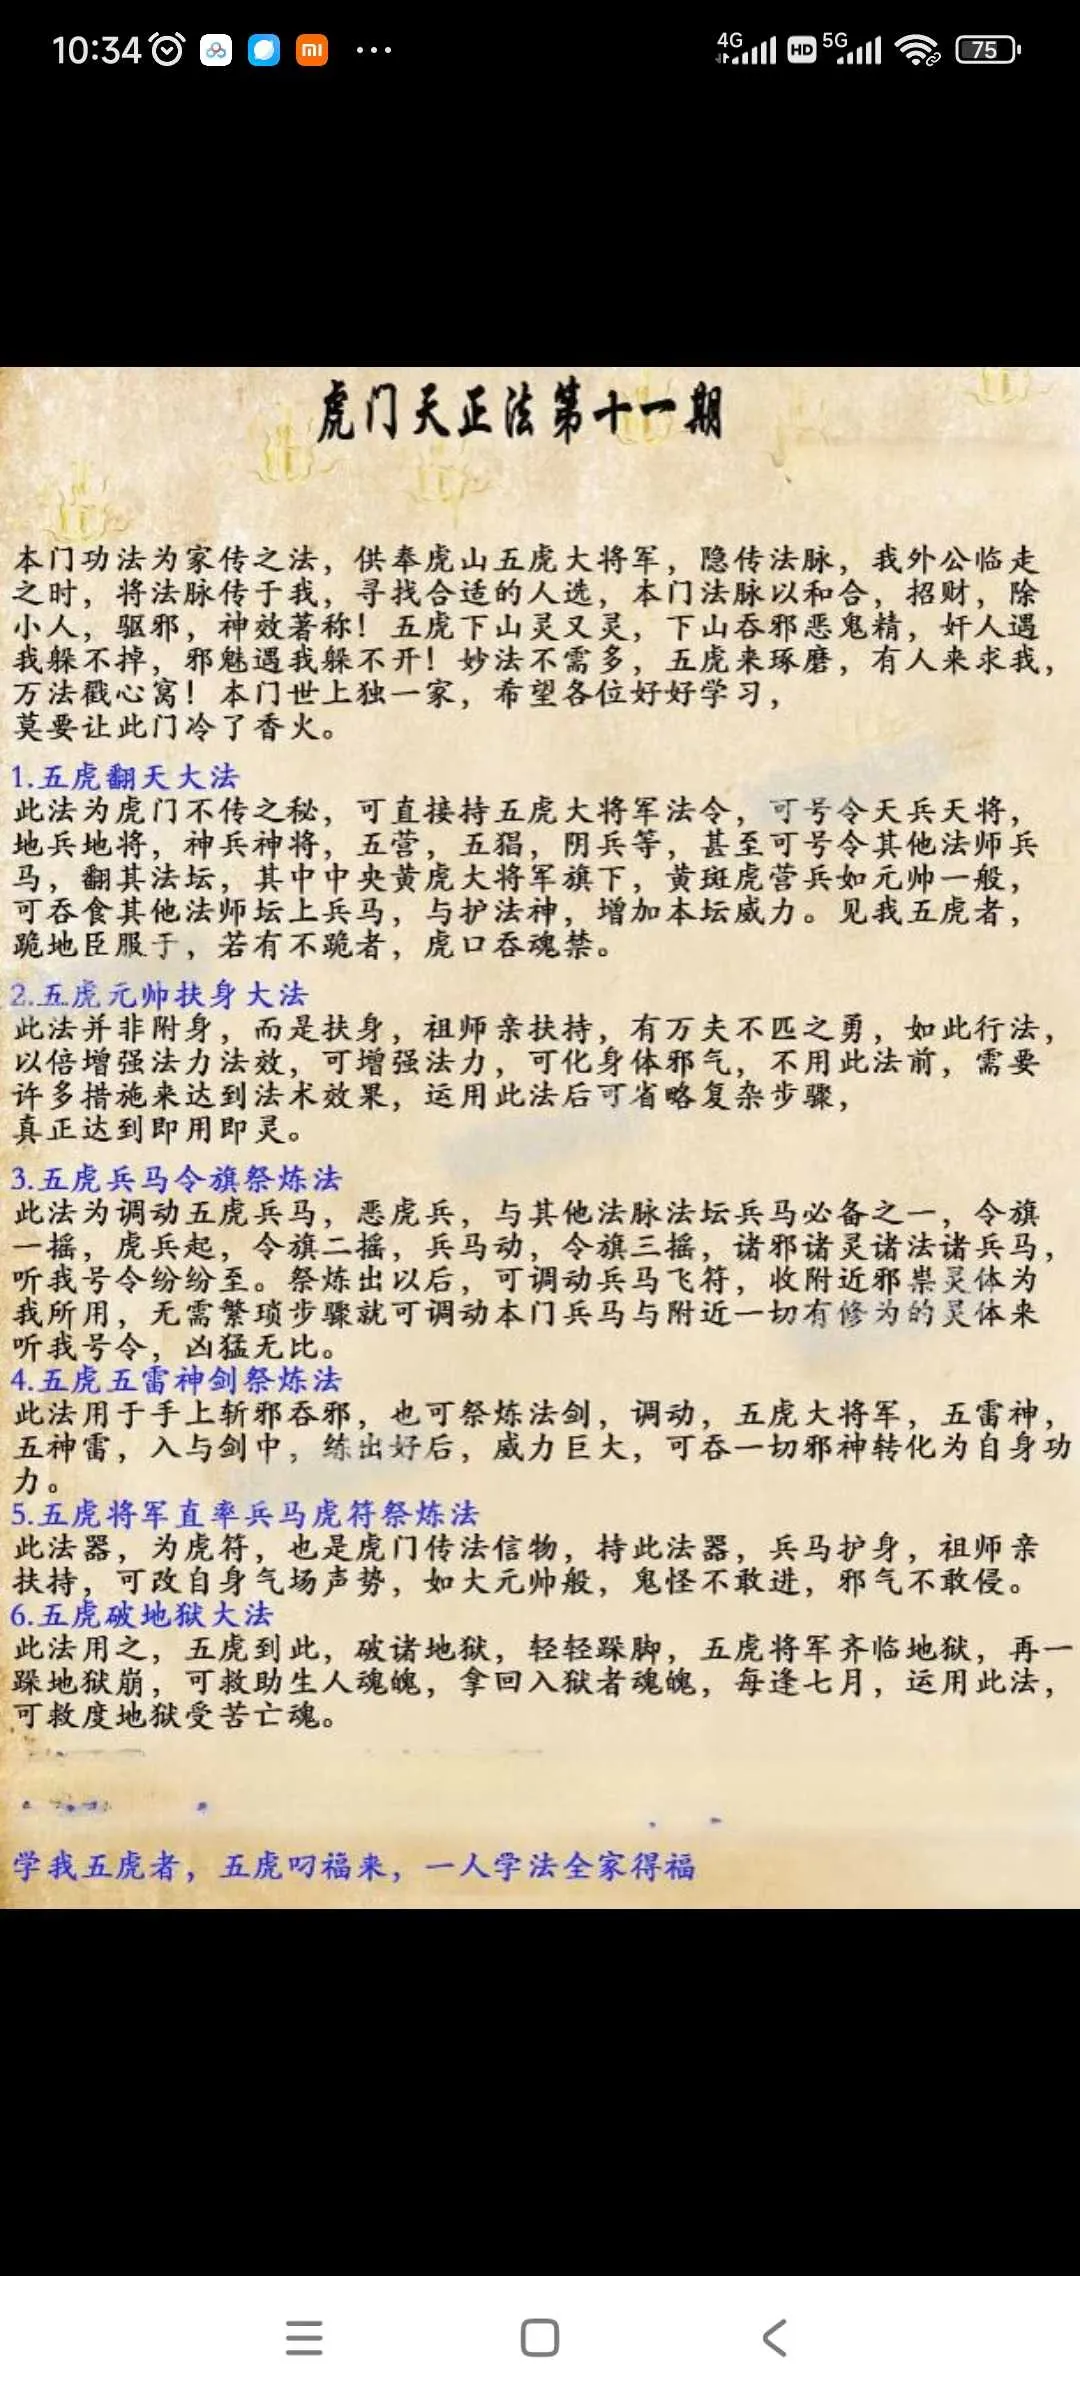 10:34
4G
HD
5G
75
虎门天正法第十一期
本门功法为家传之法，供奉虎山五虎大将军，隐传法脉，我外公临走
之时，将法脉传于我，寻找合适的人选，本门法脉以和合，招财，除
小人，驱邪，神效著称！五虎下山灵又灵，下山吞邪恶鬼精，奸人遇
我躲不掉，邪魅遇我躲不开！妙法不需多，五虎来琢磨，有人来求我，
万法戳心窝！本门世上独一家，希望各位好好学习，
莫要让此门冷了香火。
1.五虎翻天大法
此法为虎门不传之秘，可直接持五虎大将军法令，可号令天兵天将，
地兵地将，神兵神将，五营，五猖，阴兵等，甚至可号令其他法师兵
马，翻其法坛，其中中央黄虎大将军旗下，黄斑虎营兵如元帅一般，
可吞食其他法师坛上兵马，与护法神，增加本坛威力。见我五虎者，
跪地臣服于，若有不跪者，虎口吞魂禁。
2.五虎元帅扶身大法
此法并非附身，而是扶身，祖师亲扶持，有万夫不匹之勇，如此行法，
以倍增强法力法效，可增强法力，可化身体邪气，不用此法前，需要
许多措施来达到法术效果，运用此法后可省略复杂步骤，
真正达到即用即灵。
3.五虎兵马令旗祭炼法
此法为调动五虎兵马，恶虎兵，与其他法脉法坛兵马必备之一，令旗
一摇，虎兵起，令旗二摇，兵马动，令旗三摇，诸邪诸灵诸法诸兵马，
听我号令纷纷至。祭炼出以后，可调动兵马飞符，收附近邪祟灵体为
我所用，无需繁琐步骤就可调动本门兵马与附近一切有修为的灵体来
听我号令，凶猛无比。
4.五虎五雷神剑祭炼法
此法用于手上斩邪吞邪，也可祭炼法剑，调动，五虎大将军，五雷神，
五神雷，入与剑中，练出好后，威力巨大，可吞一切邪神转化为自身功
力。
5.五虎将军直率兵马虎符祭炼法
此法器，为虎符，也是虎门传法信物，持此法器，兵马护身，祖师亲
扶持，可改自身气场声势，如大元帅般，鬼怪不敢进，邪气不敢侵。
6.五虎破地狱大法
此法用之，五虎到此，破诸地狱，轻轻跺脚，五虎将军齐临地狱，再一
跺地狱崩，可救助生人魂魄，拿回入狱者魂魄，每逢七月，运用此法，
可救度地狱受苦亡魂。
学我五虎者，五虎叼福来，一人学法全家得福